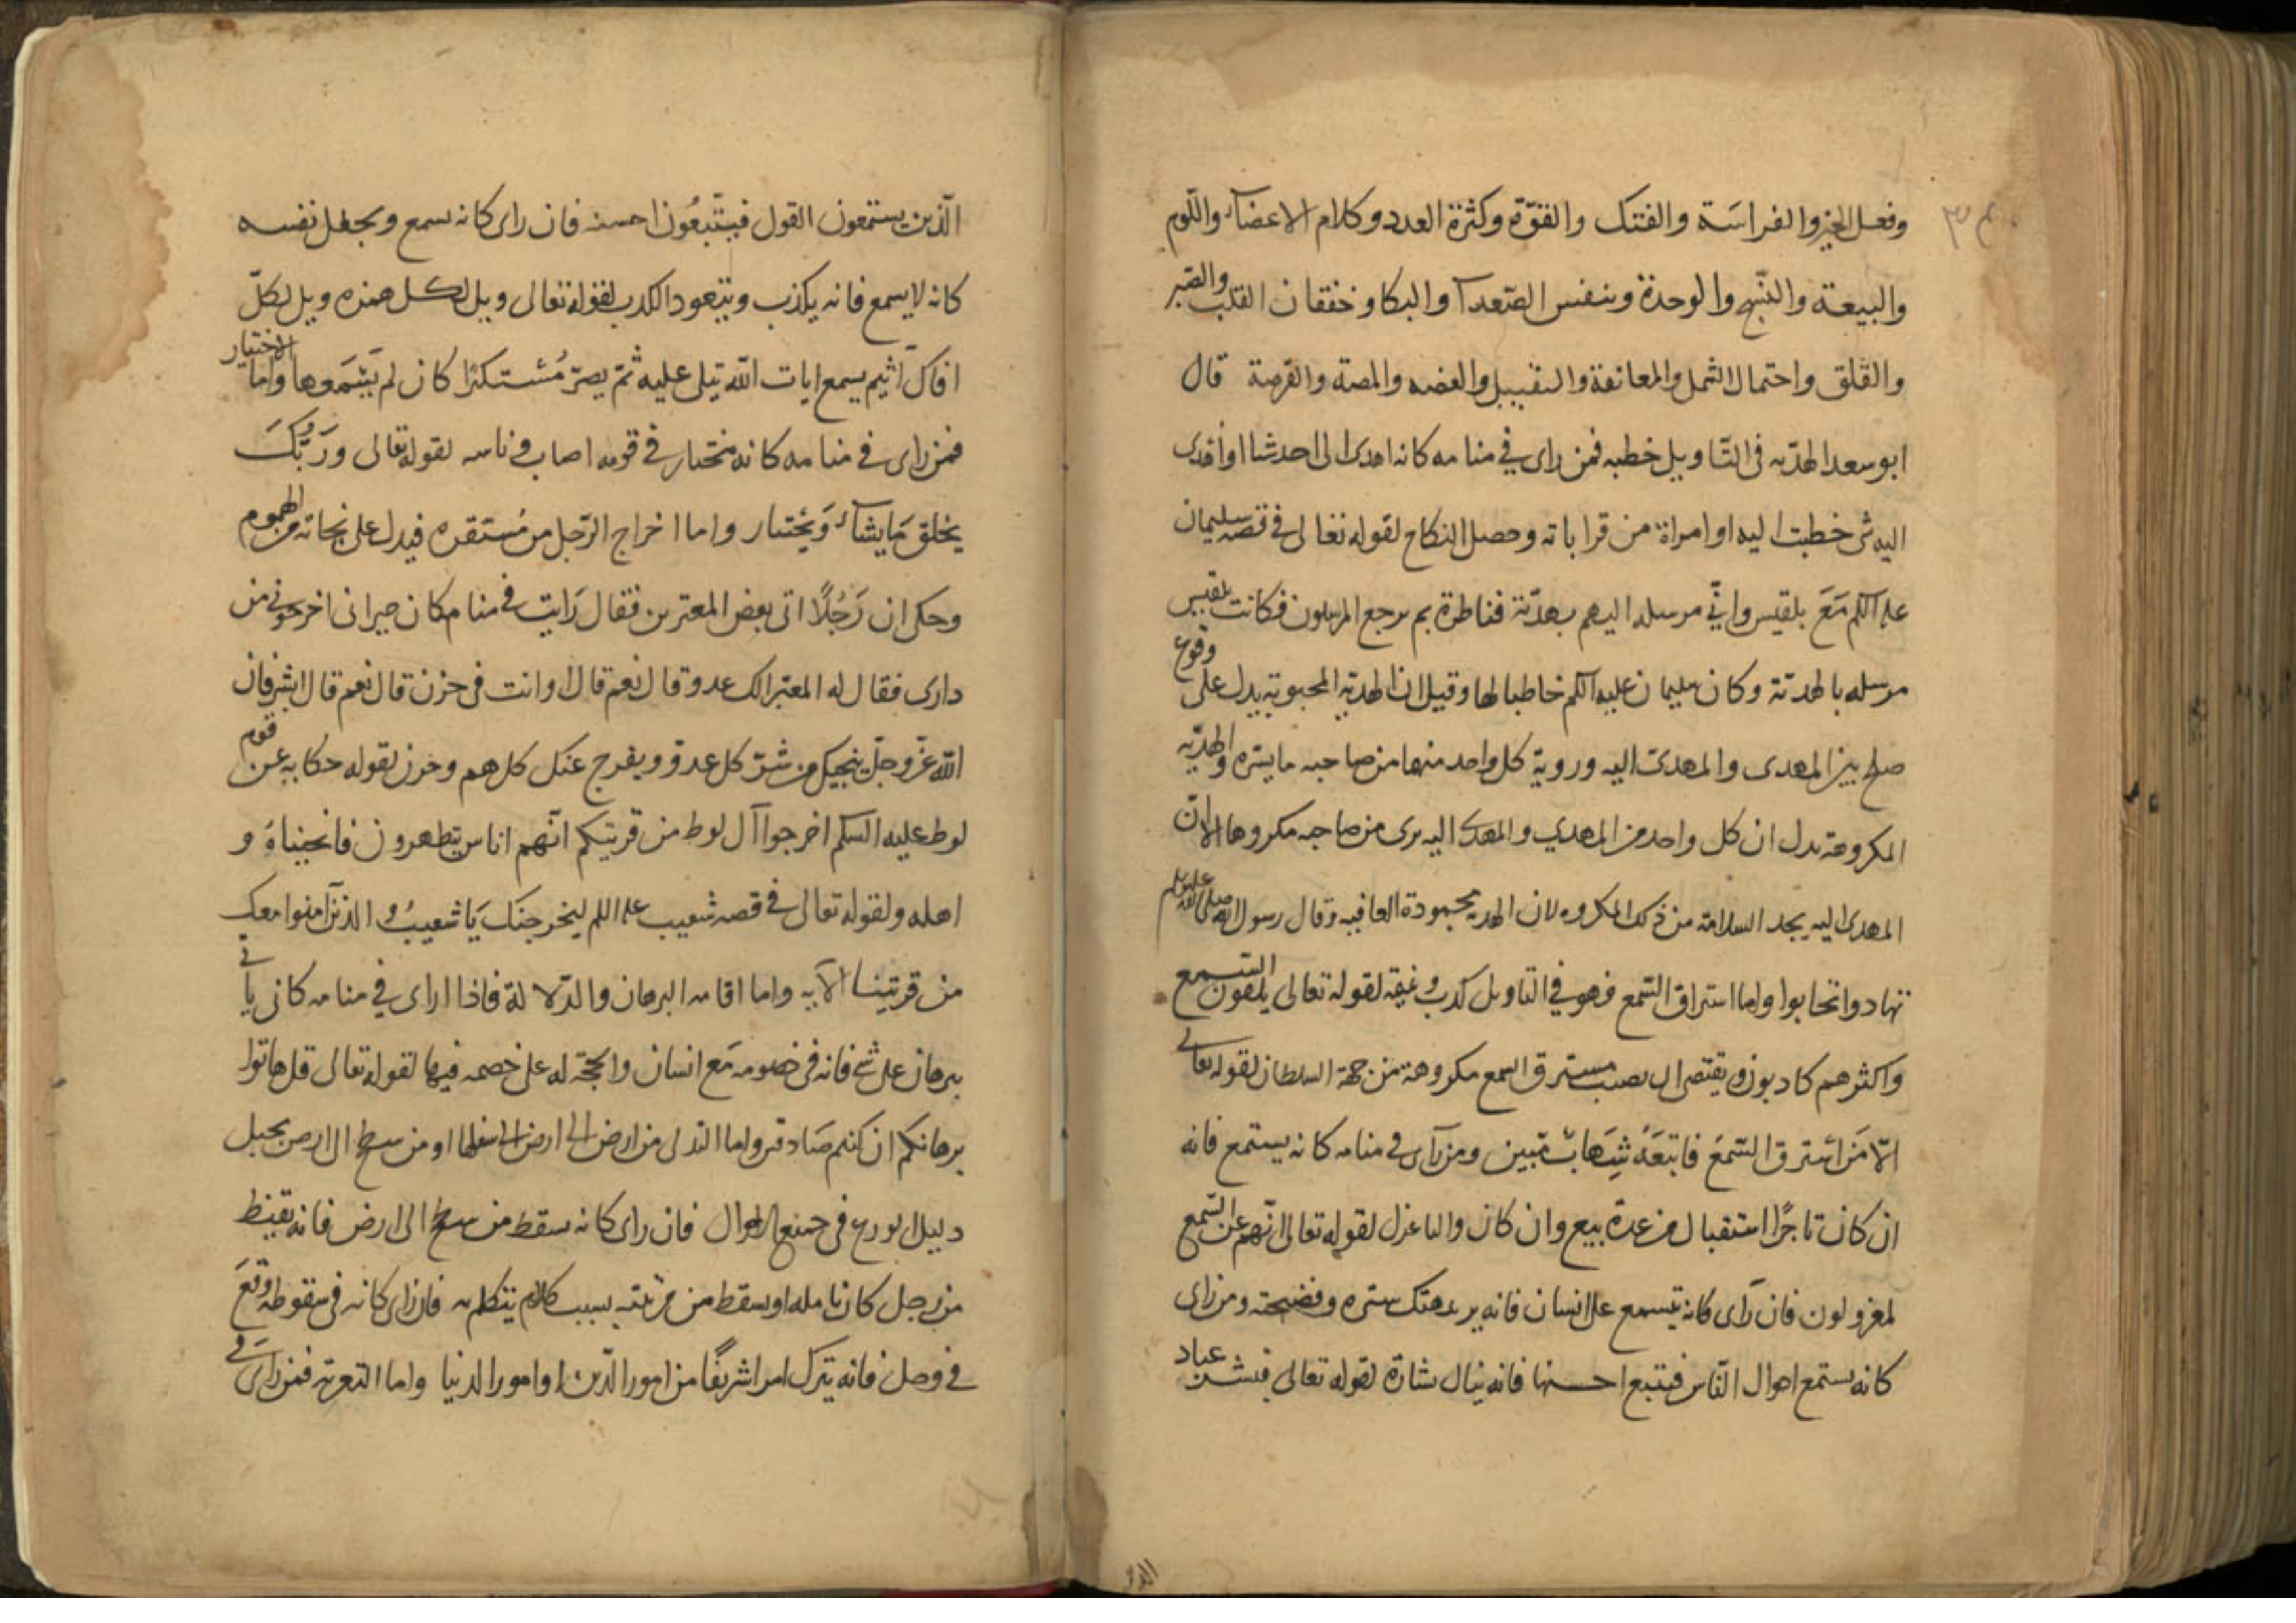 وفعل الخير والفراسَة والفتك والقوّة وكثرة العدد وكلام الاعضآء واللوم
والبيعة والتيه والوحدة وتنفس الصّعدآ والبكا وخفقان القلب والصّبر
والقلق واحتمال الثمل والمعانقة والتقبيل والعضه والمصة والقرصة قال
ابو سعد الهديّه فى التاويل خطبه فمن راى في منامه كانه اهدى الى احد شيا او اهدى
اليه شى خطبت اليه او امراة من قراباته وحصل النكاح لقوله تعالى فى قصة سليمان
عليه السلم مَعَ بلقيس واني مرسله اليهم بهديّة فناظرة بم يرجع المرسلون فكانت بلقيس
مرسله بالهدية وكان سليمان عليه السلم خاطبا لها وقيل ان الهديّة المحبوبة يدل على وقوع
صلح بين المهدى والمهدى اليه وروية كل واحد منهما من صاحبه ما يسّره والهديّه
المكروهة يدل ان كل واحد من المهدي والمهدى اليه يرى من صاحبه مكروها الا ان
المهدى اليه يجد السلامة من ذلك المكروه لان الهديه محمودة العاقبه وقال رسول الله صلى الله عليه وسلم
تهادوا تحابوا واما استراق السّمع فهو في التاويل كذب وغيبة لقوله تعالى يلقون السّمع
واكثرهم كاذبون ويقتضى ان يصيب مسترق السمع مكروهة من جهة السلطان لقوله تعالى
الّا مَن استرق السّمعَ فاتبعَهُ شِهَابٌ مّبين ومن رآى في منامه كانه يستمع فانه
ان كان تاجرًا استقبال من عدة بيع وان كان واليا عزل لقوله تعالى انّهم عن السّمع
لمعزولون فان رآى كانه يتسمع على انسان فانه يريد هتك ستره وفضيحته ومن راى
كانه يستمع احوال النّاس فيتبع احسنها فانه ينال بشارة لقوله تعالى فبشر عباد
الّذين يستمعون القول فيتّبعُون احسنه فان راى كانه يسمع ويجعل نفسه
كانه لا يسمع فانه يكذب ويتعود الكذب لقوله تعالى ويل لكل همزه ويل لكلّ
افاك اثيم يسمع ايات الله تتلى عليه ثمّ يصرّ مُستكبرًا كان لم يَسْمَعها واما الاختيار
فمن راى فى منامه كانه مختار في قومه اصاب رياسه لقوله تعالى وَرَبُّكَ
يخلق مَا يشآء وَيختار واما اخراج الرّجل من مُستقره فيدل على نجاته من الهموم
وحكى ان رَجُلًا اتى بعض المعبرين فقال رَايت في منامى كان جيرانى اخرجونى من
دارى فقال له المعبر الك عدو قال نعم قال وانت فى حزن قال نعم قال ابشر فان
الله عزّ وجلّ ينجيك من شرّ كل عدوّ ويفرج عنك كل هم وحزن لقوله حكاية عن قوم
لوط عليه السلم اخرجوا آل لوط من قريتكم انّهم اناس يتطهرون فانجيناهُ و
اهله ولقوله تعالى فى قصه شعيب عليه السلم ليخرجنك يَا شعيبُ والذين آمنوا معك
من قريتنا الآيه واما اقامه البرهان والدّلالة فاذا اراى في منامه كانه ياتى
ببرهان على شى فانه فى خصومه مَع انسان والحجّة له على خصمه فيها لقوله تعالى قل هاتوا
برهانكم ان كنتم صَادقين واما التدلى من ارض الى ارض الى اسفلها او من سطح الى الارض بحبل
دليل الورع فى جميع الاحوال فان راى كانه سقط من سطح الى ارض فانه يقنط
من رجل كان يامله او سقط من مرتبته بسبب كلام يتكلم به فان راى كانه فى سقوطه وقعَ
في وحل فانه يترك امرا شريفًا من امور الدّين او امور الدنيا واما التعرية فمن راى فى